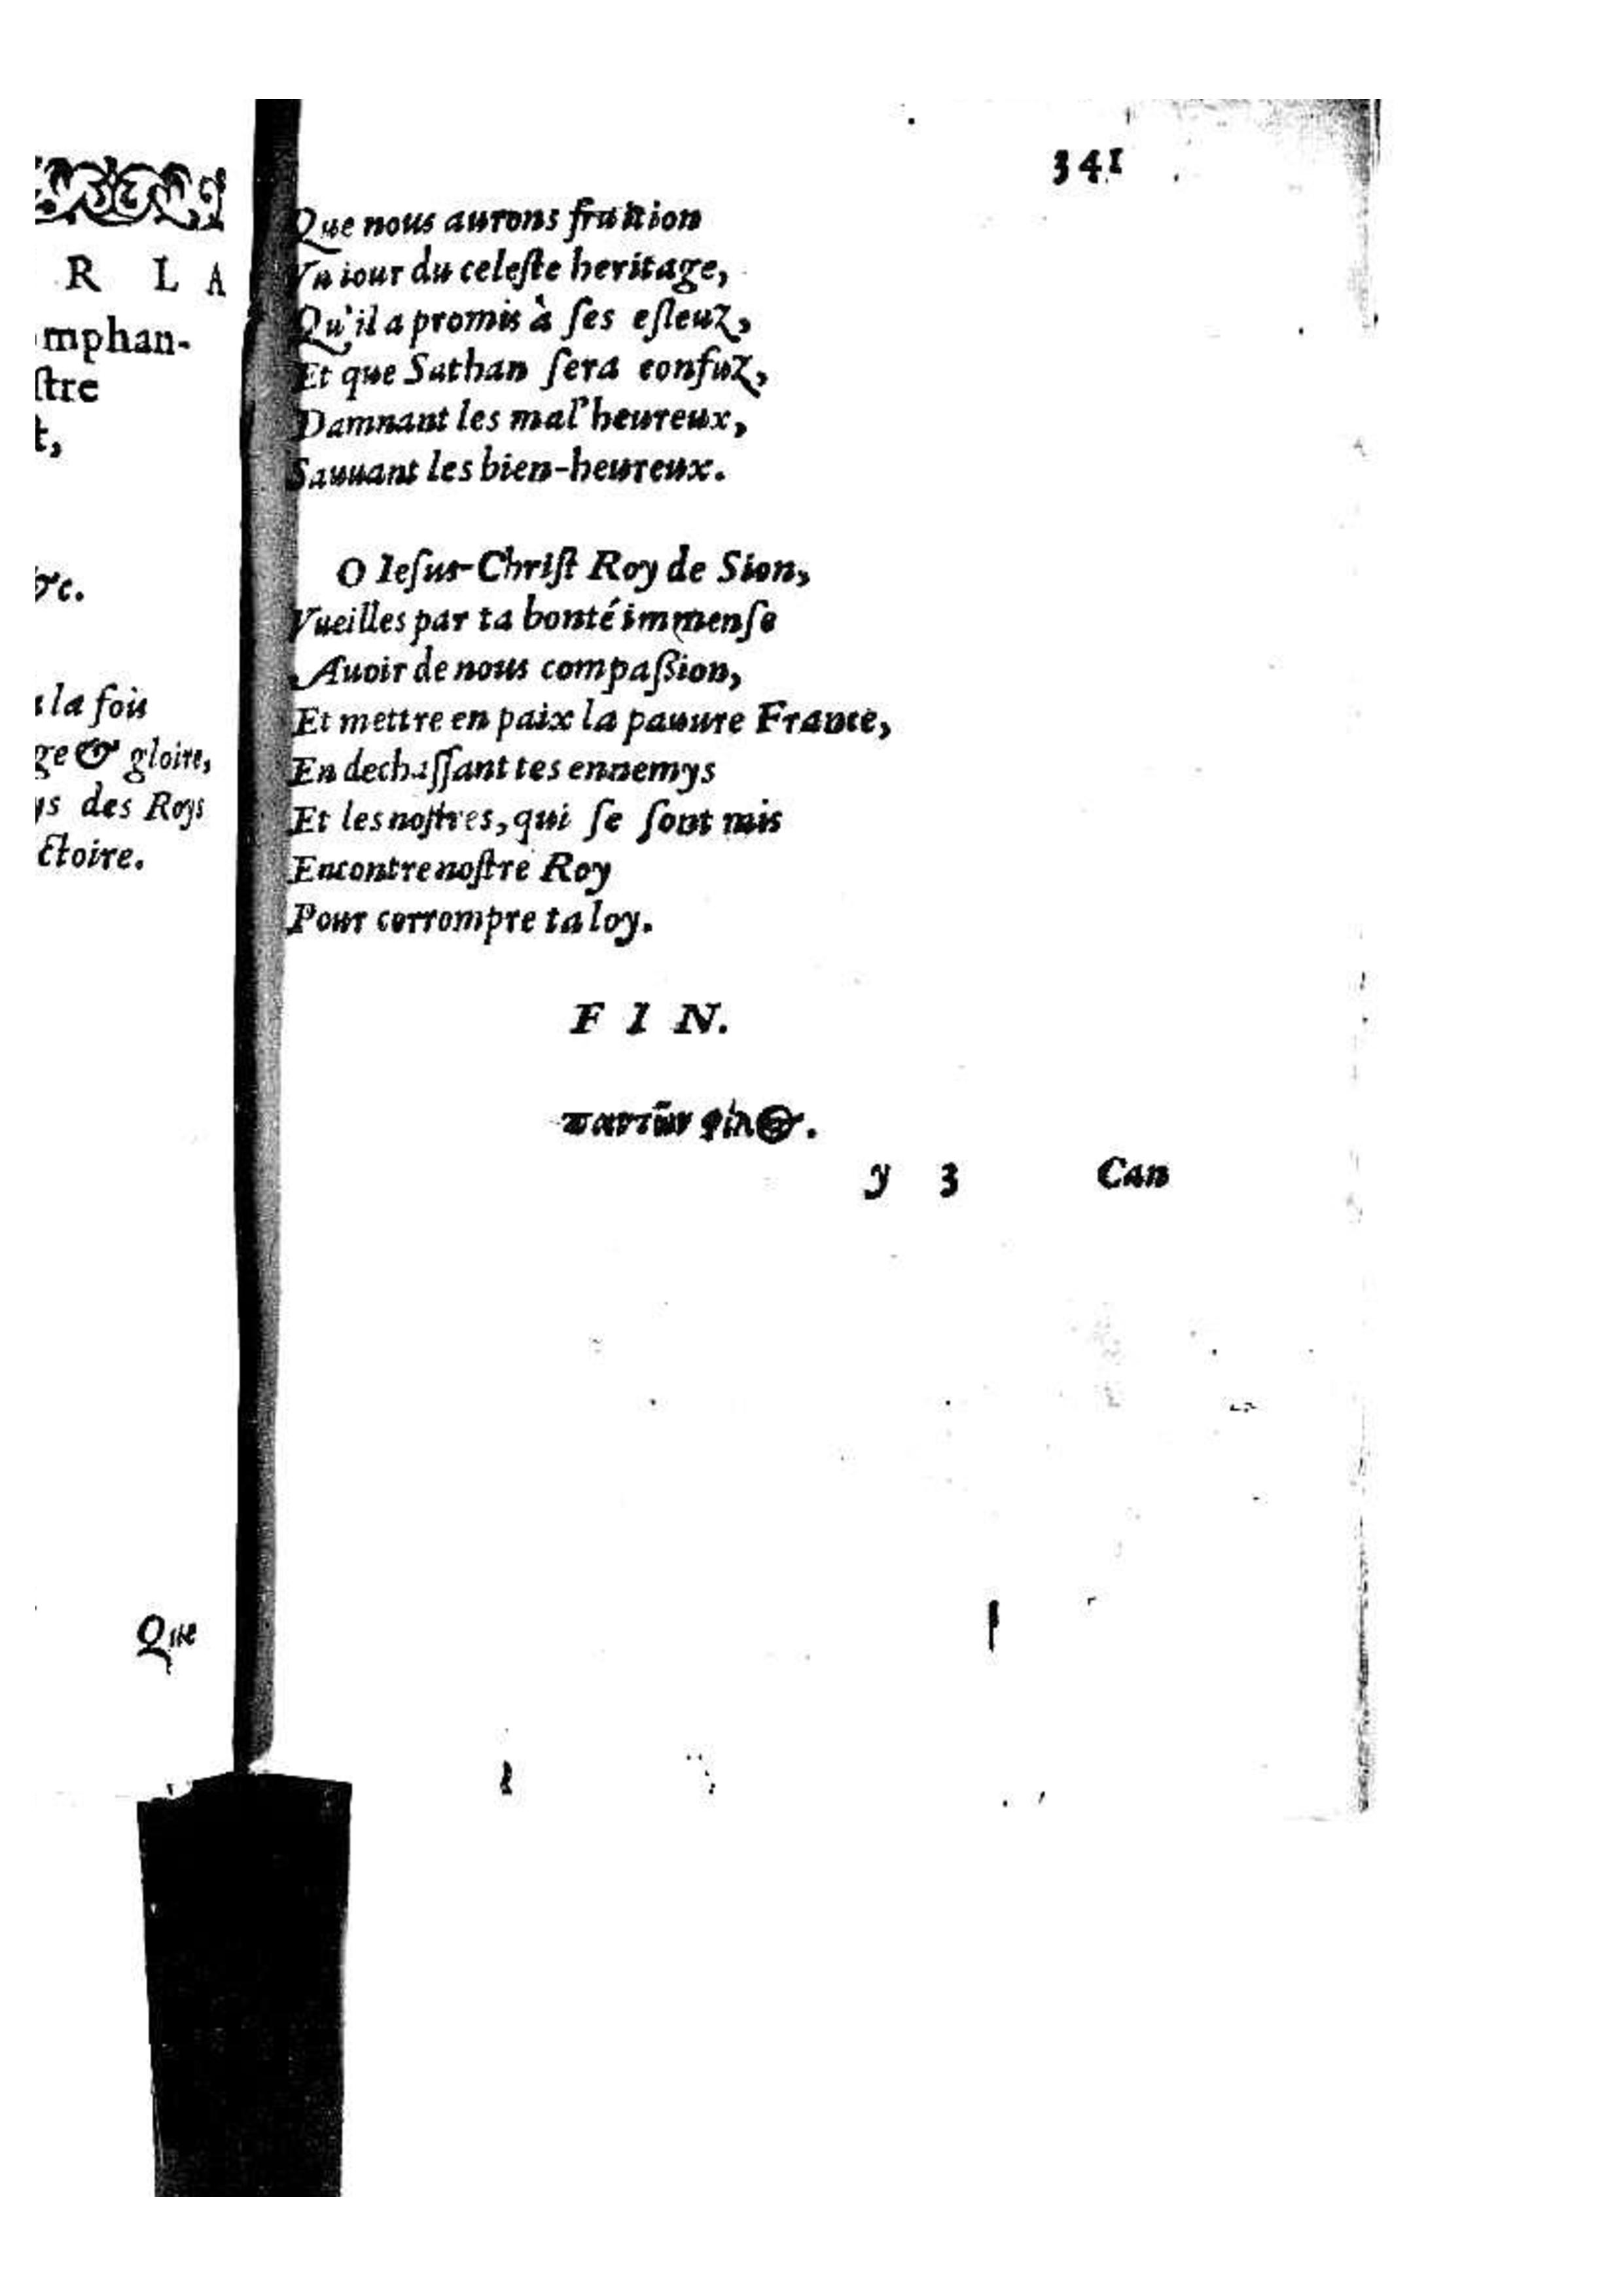 R L A
mphan-
ſtre
t,
&c.
la fois
ge & gloire,
ys des Roys
ctoire.
Que
341
Que nous aurons fruition
Vn iour du celeſte heritage,
Qu'il a promis à ſes eſleuz,
Et que Sathan ſera confuz,
Damnant les mal'heureux,
Sauuant les bien-heureux.
O Ieſus-Chriſt Roy de Sion,
Vueilles par ta bonté immenſe
Auoir de nous compaßion,
Et mettre en paix la pauure France,
En dechaſſant tes ennemys
Et les noſtres, qui ſe ſont mis
Encontre noſtre Roy
Pour corrompre ta loy.
F I N.
y 3 Can